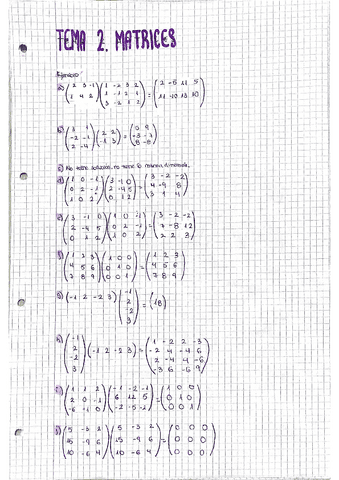 TEMA 2. MATRICES
Ejercicio
a) (2 3 -1 / 1 4 2) (1 -2 3 2 / 1 -1 2 -1 / 3 -2 1 2) = (2 -5 11 / 11 -10 13)
b) (3 1 / -2 -1 / 2 -4) (2 2 / -1 3)
c) No tiene solución, no tiene la misma dimensión.
d) (1 0 -1 / 0 2 -1 / 1 0 2) (3 -1 0 / 2 -4 5 / 0 1 2) = (3 -2 -2 / 4 -9 8 / 3 1 4)
e) (3 -1 0 / 2 -4 5 / 0 1 2) (1 0 -1 / 0 2 -1 / 1 0 2) = (3 -2 -2 / 7 -8 12 / 2 2 3)
f) (1 2 3 / 4 5 6 / 7 8 9) (1 0 0 / 0 1 0 / 0 0 1) = (1 2 3 / 4 5 6 / 7 8 9)
g) (-1 2 -2 3) (-1 / 2 / -2 / 3) = (18)
h) (-1 / 2 / -2 / 3) (-1 2 -2 3) = (1 -2 2 -3 / -2 4 -4 6 / 2 -4 4 -6 / -3 6 -6 9)
i) (1 1 2 / 2 0 -1 / -6 -1 0) (-1 -2 -1 / 6 12 5 / -2 -5 -2) = (1 0 0 / 0 1 0 / 0 0 1)
j) (5 -3 2 / 15 -9 6 / 10 -6 4) (5 -3 2 / 15 -9 6 / 10 -6 4) = (0 0 0 / 0 0 0 / 0 0 0)